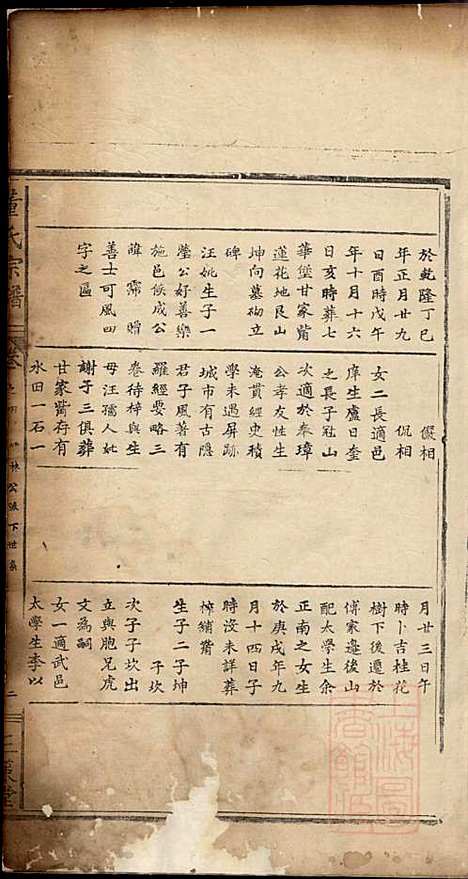 於乾隆丁巳
年正月廿九
日酉時戊午
年十月十六
日亥時葬七
華堡甘家嘴
蓮花地艮山
坤向墓砌立
碑
汪姚生子一
瑩公好善樂
施邑候成公
諱霈贈
善士可風四
字之區
儼相
侃相
女二長適邑
庠生盧日奎
之長子冠山
次適於奉璋
公孝友性生
淹貫經史積
學未遇屏跡
城市有古隱
君子風著有
羅經要略三
卷待梓與生
母汪孺人妣
謝子三俱葬
甘家嘴存有
水田一石一
月廿三日午
時卜吉桂花
樹下後遷於
傅家邉後山
配太學生余
正南之女生
於庚戌年九
月十四日子
時沒未詳葬
榨鋪嘴
生子二子坤
子坎
次子子坎出
立與胞兄虎
文為嗣
女一適武邑
太學生李以
董氏宗譜
卷
林公派下世系
二
三策堂
上海圖書館藏